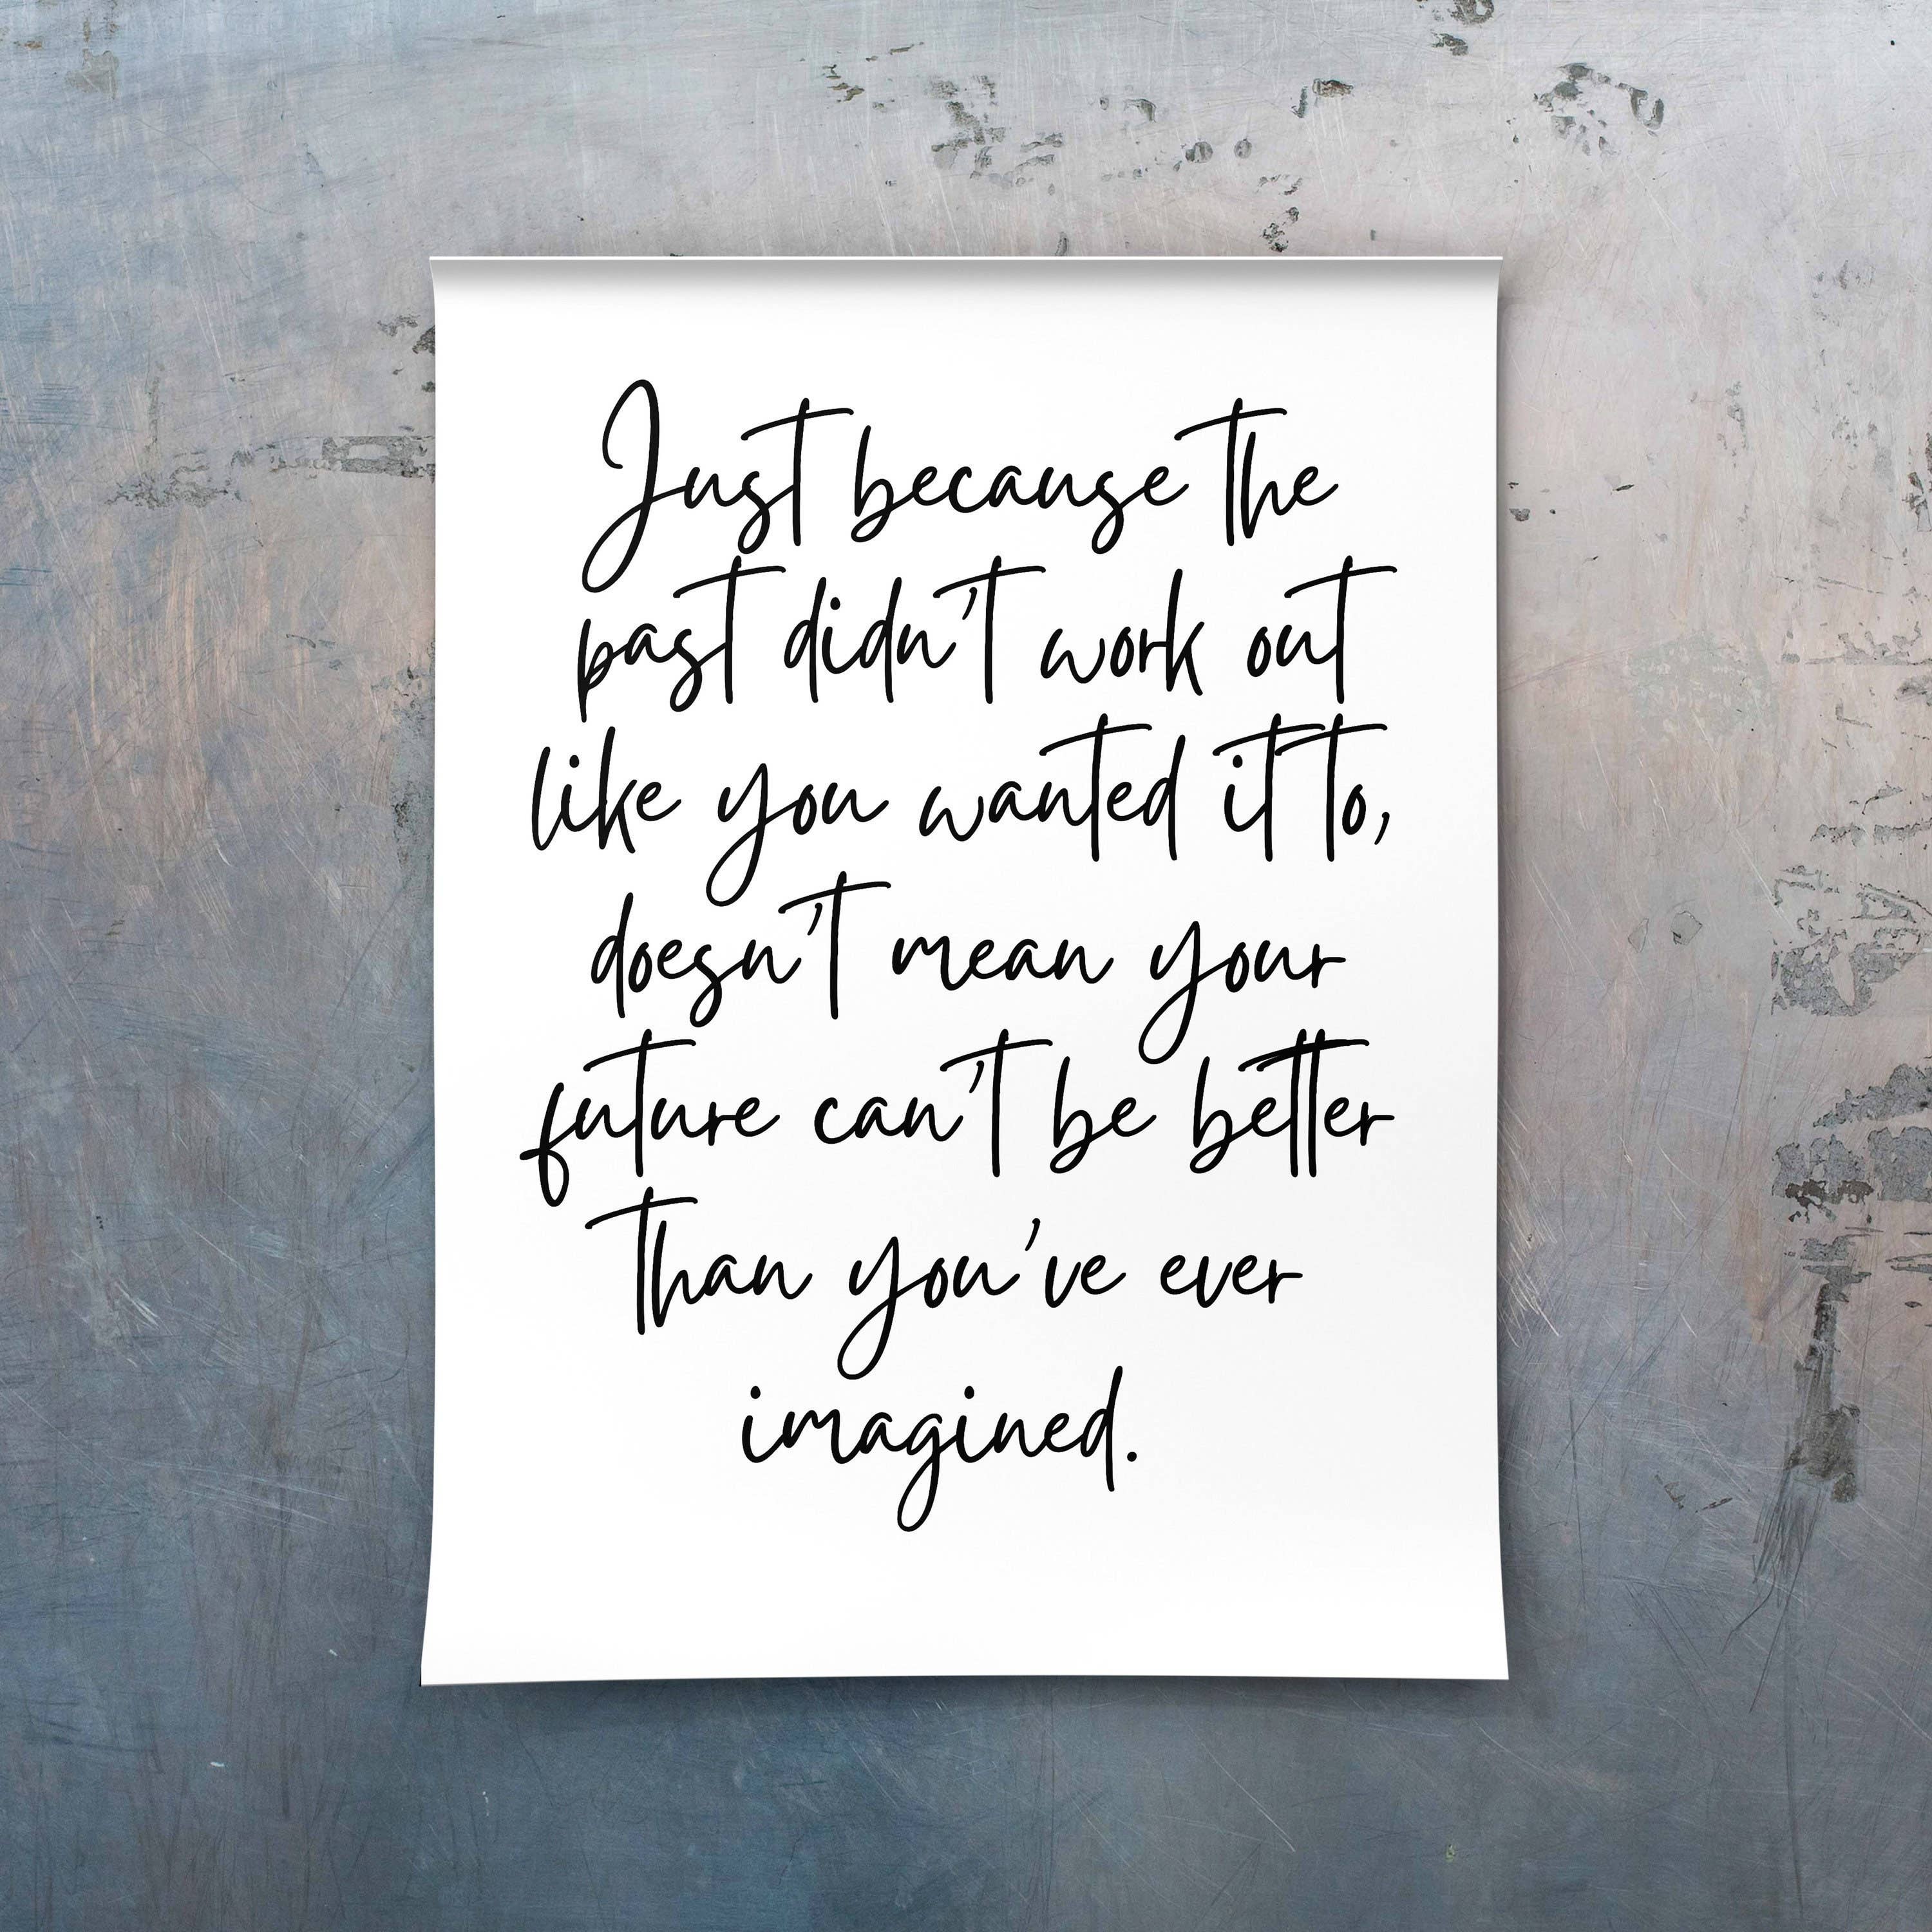 Just because the
past didn't work out
like you wanted it to,
doesn't mean your
future can't be better
than you've ever
imagined.